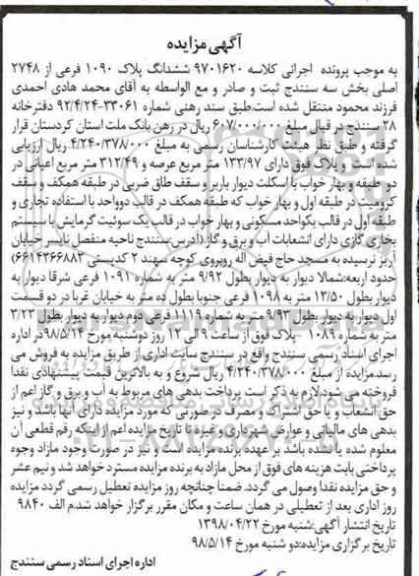 آگهی مزایده
به موجب پرونده اجرائی کلاسه ۹۷۰۱۶۲۰ ششدانگ پلاک ۱۰۹۰ فرعی از ۲۷۴۸
اصلی بخش سه سنندج ثبت و صادر و مع الواسطه به آقای محمد هادی احمدی
فرزند محمود منتقل شده است.طبق سند رهنی شماره ۳۳۰۶۱-۹۲/۴/۲۴ دفترخانه
۲۸ سنندج در قبال مبلغ ۶۰۷/۰۰۰/۰۰۰ ریال در رهن بانک ملت استان کردستان قرار
گرفته و طبق نظر هیئت کارشناسان رسمی به مبلغ ۴/۲۴۰/۳۷۸/۰۰۰ ریال ارزیابی
شده است و پلاک فوق دارای ۱۳۳/۹۷ متر مربع عرصه و ۳۱۲/۴۹ متر مربع اعیانی در
دو طبقه و بهار خواب با اسکلت دیوار باربر و سقف طاق ضربی در طبقه همکف و سقف
کرومیت در طبقه اول و بهار خواب که طبقه همکف در قالب دوواحد با استفاده تجاری و
طبقه اول در قالب یکواحد مسکونی و بهار خواب در قالب یک سوئیت گرمایش با سیستم
بخاری گازی دارای انشعابات آب و برق و گاز (آدرس:سنندج ناحیه منفصل نایسر خیابان
آریز نرسیده به مسجد حاج فیض اله روبروی کوچه سهند ۲ کدپستی ۶۶۱۴۳۶۶۸۸۳)
حدود اربعه:شمالا دیوار به دیوار بطول ۹/۹۲ متر به شماره ۱۰۹۱ فرعی شرقا دیوار به
دیوار بطول ۱۳/۵۰ متر به ۱۰۹۸ فرعی جنوبا بطول ده متر به خیابان غربا در دو قسمت
اول دیوار به دیوار بطول ۹/۹۳ متر به شماره ۱۱۱۹ فرعی دوم دیوار به دیوار بطول ۳/۲۳
متر به شماره ۱۰۸۹ - پلاک فوق از ساعت ۹ الی ۱۲ روز دوشنبه مورخ ۹۸/۵/۱۴ در اداره
اجرای اسناد رسمی سنندج واقع در سنندج سایت اداری از طریق مزایده به فروش می
رسد.مزایده از مبلغ ۴/۲۴۰/۳۷۸/۰۰۰ ریال شروع و به بالاترین قیمت پیشنهادی نقدا
فروخته می شود.لازم به ذکر است پرداخت بدهی های مربوط به آب و برق و گاز اعم از
حق انشعاب و یا حق اشتراک و مصرف در صورتی که مورد مزایده دارای آنها باشد و نیز
بدهی های مالیاتی و عوارض شهرداری و غیره تا تاریخ مزایده اعم از اینکه رقم قطعی آن
معلوم شده یا نشده باشد بر عهده برنده مزایده است و نیز در صورت وجود مازاد وجوه
پرداختی بابت هزینه های فوق از محل مازاد به برنده مزایده مسترد خواهد شد و نیم عشر
و حق مزایده نقدا وصول می گردد. ضمنا چنانچه روز مزایده تعطیل رسمی گردد مزایده
روز اداری بعد از تعطیلی در همان ساعت و مکان مقرر برگزار خواهد شد.م الف ۹۸۴۰
تاریخ انتشار آگهی:شنبه مورخ ۱۳۹۸/۰۴/۲۲
تاریخ برگزاری مزایده:دو شنبه مورخ ۹۸/۵/۱۴
اداره اجرای اسناد رسمی سنندج